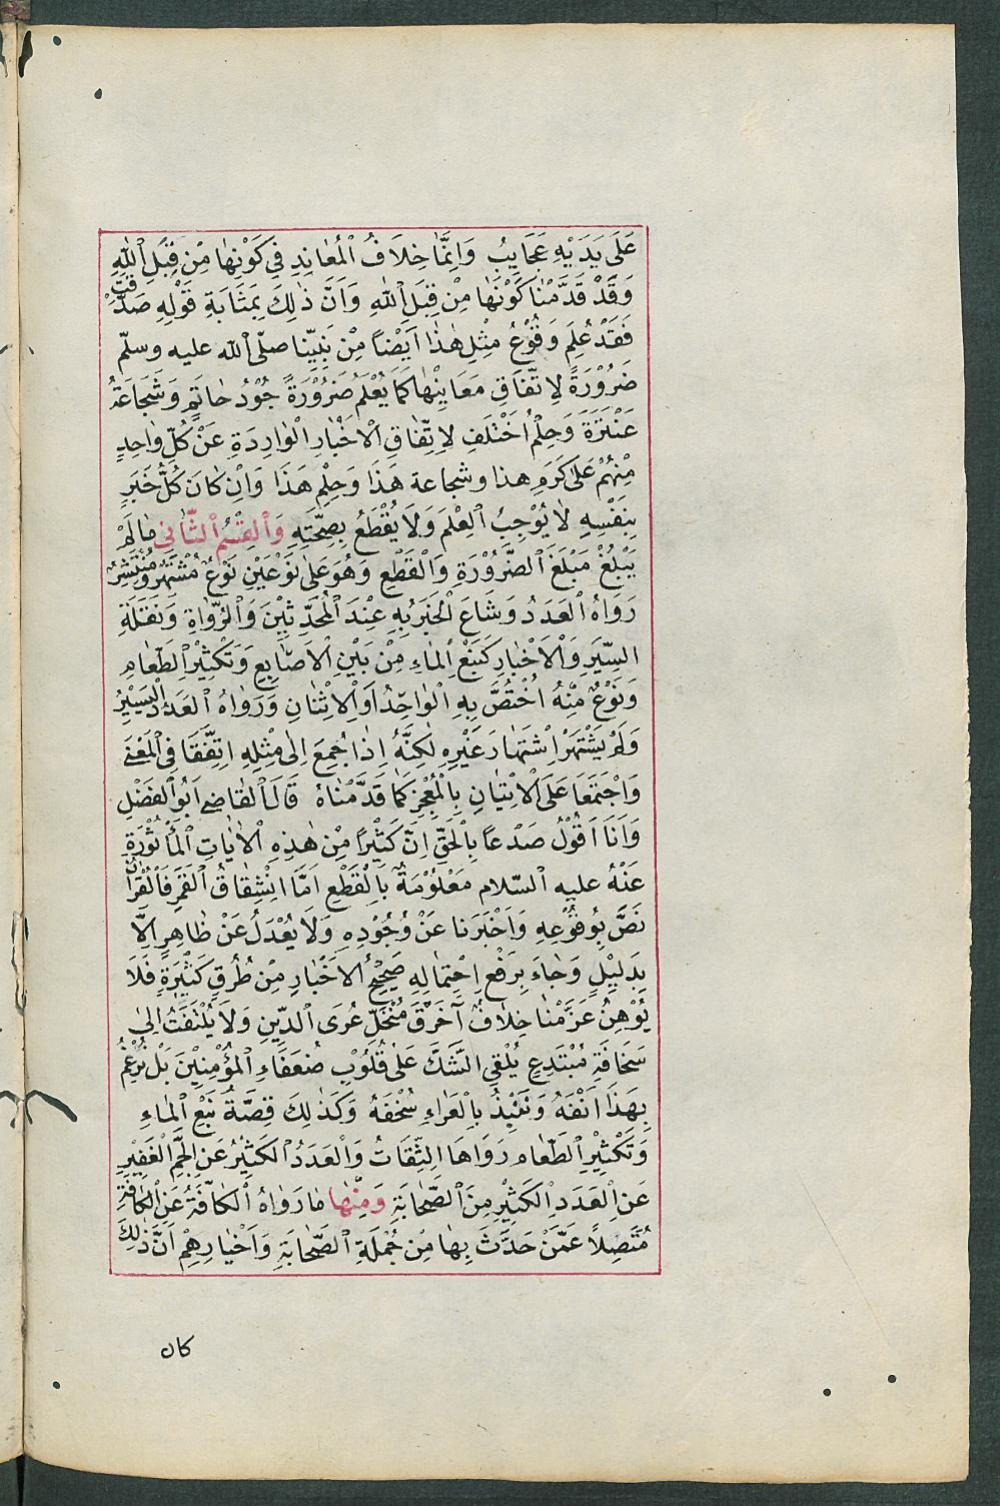 عَلَى يَدَيْهِ عَجَايِبُ وَاِنَّمَا خِلَافُ ٱلْمُعَانِدِ فِي كَوْنِهَا مِنْ قِبَلِ ٱللهِ
وَقَدْ قَدَّمْنَا كَوْنَهَا مِنْ قِبَلِ ٱللهِ وَاَنَّ ذٰلِكَ بِمَثَابَةِ قَوْلِهِ صَدَقْتَ
فَقَدْ عُلِمَ وَقُوْعُ مِثْلِ هٰذَا اَيْضًا مِنْ نَبِيِّنَا صلّى ٱلله عليه وسلّم
ضَرُوْرَةً لِاتِّفَاقِ مَعَانِيْهَا كَمَا يُعْلَمُ ضَرُوْرَةً جُوْدُ حَاتَمٍ وَشَجَاعَةُ
عَنْتَرَةَ وَحِلْمُ اَحْنَفَ لِاتِّفَاقِ الْاَخْبَارِ الْوَارِدَةِ عَنْ كُلِّ وَاحِدٍ
مِنْهُمْ عَلَى كَرَمِ هذا وشجاعة هَذَا وَحِلْمِ هَذَا وَاِنْ كَانَ كُلُّ خَبَرٍ
بِنَفْسِهِ لَا يُوْجِبُ الْعِلْمَ وَلَا يُقْطَعُ بِصِحَّتِهِ وَٱلْقِسْمُ ٱلثَّانِى مَا لَمْ
يَبْلُغْ مَبْلَغَ ٱلضَّرُوْرَةِ وَالْقَطْعِ وَهُوَ عَلَى نَوْعَيْنِ نَوْعٌ مُشْتَهِرٌ وَمُنْتَشِرٌ
رَوَاهُ ٱلْعَدَدُ وَشَاعَ الْخَبَرُ بِهِ عِنْدَ ٱلْمُحَدِّثِيْنَ وَٱلرُّوَاةِ وَنَقَلَةِ
السِّيَرِ وَالْاَخْبَارِ كَنَبْعِ الْمَاءِ مِنْ بَيْنِ الْاَصَابِعِ وَتَكْثِيْرِ الطَّعَامِ
وَنَوْعٌ مِنْهُ اُخْتُصَّ بِهِ الْوَاحِدُ اَوِ الْاِثْنَانِ وَرَوَاهُ ٱلْعَدَدُ الْيَسِيْرُ
وَلَمْ يَشْتَهِرْ اِشْتِهَارَ غَيْرِهِ لٰكِنَّهُ اِذَا جُمِعَ اِلَى مِثْلِهِ اتَّفَقَا فِي الْمَعْنَى
وَاجْتَمَعَا عَلَى الْاِتْيَانِ بِالْمُعْجِزِ كَمَا قَدَّمْنَاهُ قَالَ ٱلْقَاضِى اَبُو ٱلْفَضْلِ
وَاَنَا اَقُوْلُ صَدْعًا بِالْحَقِّ اِنَّ كَثِيْرًا مِنْ هٰذِهِ الْاٰيَاتِ ٱلْمَأْثُوْرَةِ
عَنْهُ عليه ٱلسّلام مَعْلُوْمَةٌ بِالْقَطْعِ اَمَّا انْشِقَاقُ ٱلْقَمَرِ فَالْقُرْاٰنُ
نَصَّ بِوُقُوْعِهِ وَاَخْبَرَنَا عَنْ وُجُوْدِهِ وَلَا يُعْدَلُ عَنْ ظَاهِرٍ اِلَّا
بِدَلِيْلٍ وَجَاءَ بِرَفْعِ احْتِمَالِهِ صَحِيْحُ الْاَخْبَارِ مِنْ طُرُقٍ كَثِيْرَةٍ فَلَا
يُوْهِنُ عَزْمَنَا خِلَافُ اَخْرَقَ مُنْحَلِّ عُرَى ٱلدِّيْنِ وَلَا يُلْتَفَتُ اِلَى
سَخَافَةِ مُبْتَدِعٍ يُلْقِي الشَّكَّ عَلَى قُلُوْبِ ضُعَفَاءِ ٱلْمُؤْمِنِيْنَ بَلْ نُرْغِمُ
بِهَذَا اَنْفَهُ وَنَنْبِذُ بِالْعَرَاءِ سُخْفَهُ وَكَذٰلِكَ قِصَّةُ نَبْعِ الْمَاءِ
وَتَكْثِيْرِ ٱلطَّعَامِ رَوَاهَا الثِّقَاتُ وَالْعَدَدُ ٱلْكَثِيْرُ عَنِ الْجَمِّ الْغَفِيْرِ
عَنِ الْعَدَدِ الْكَثِيْرِ مِنَ ٱلصَّحَابَةِ وَمِنْهَا مَا رَوَاهُ ٱلْكَافَّةُ عَنِ الْكَافَّةِ
مُتَّصِلًا عَمَّنْ حَدَّثَ بِهَا مِنْ جُمْلَةِ ٱلصَّحَابَةِ وَاَخْبَارِهِمْ اَنَّ ذٰلِكَ
كان